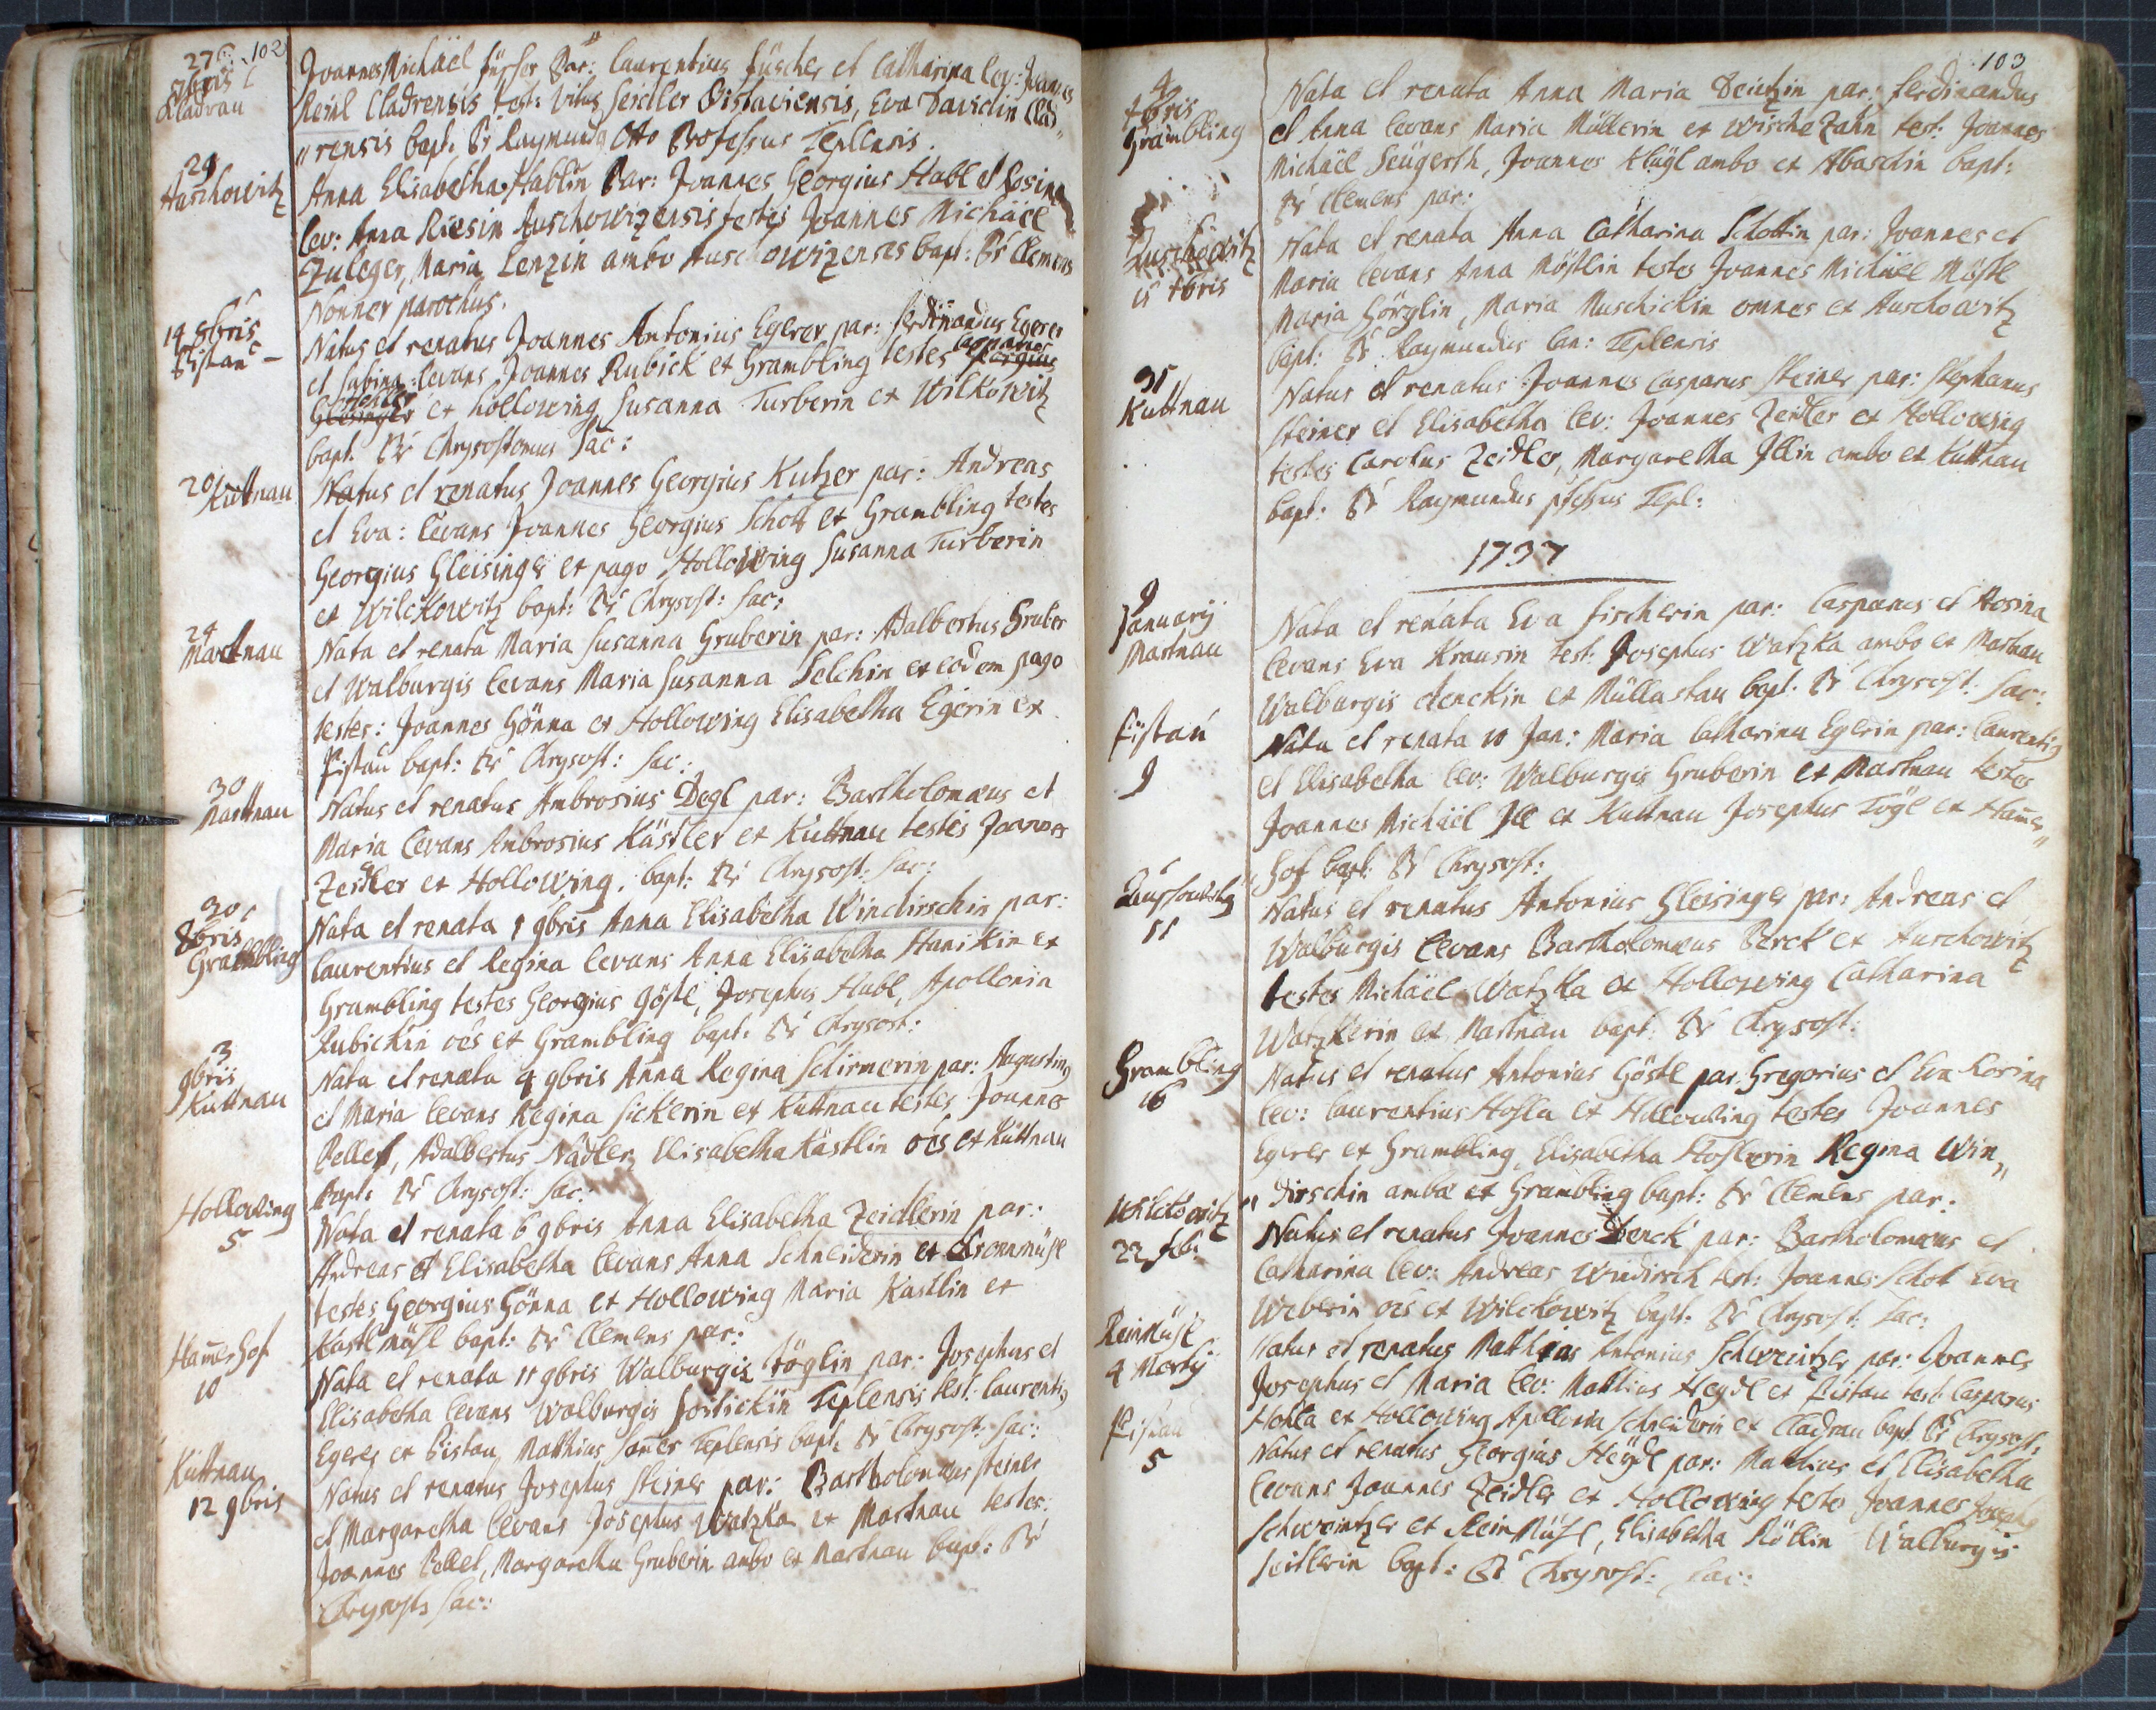 102
27
7bris
Kladrau
Joannes Michäel füscher Par: laurentius füscher et Catharina lev: Joannes
Reinl Cladrensis test: Vitus Seidler Pistaviensis, Eva Davidin Clad"
"rensis bapt. Pr Raymundus Otto Professus Teplensis.
29
Auschowitz
Anna Elisabetha Hablin Par: Joannes Georgius Habl et Rosina
lev: Anna Riesin Auschowizensis testes Joannes Michäel
Zuleger, Maria Lenzin ambo Auschowizenses bapt: Pr Clemens
Nonner parochus.
14 8bris
Pistau
Natus et renatus Joannes Antonius Egerer par: ferdinandus Egerer
et Sabina: levans Joannes Rubick ex Grambling testes Joannes
Zeidler ex hollowing Susanna Turberin ex Wilkowitz
bapt. Pr Chrysostomus Sac:
20 Kuttnau
Natus et renatus Joannes Georgius Kutzer par: Andreas
et Eva: levans Joannes Georgius Schott ex Grambling testes
Georgius Gleisinger ex pago Hollowing Susanna Turberin
ex Wilckowitz bapt: Pr Chrysost: Sac:
24
Martnau
Nata et renata Maria Susanna Gruberin par: Adalbertus Gruber
et Walburgis levans Maria Susanna Selchin ex eodem pago
testes: Joannes Hönna ex Hollowing Elisabetha Egerin ex
Pistau bapt: Pr Chrysost: Sac:
30
Martnau
Natus et renatus Ambrosius Degl par: Bartholomæus et
Maria levans Ambrosius Kästler ex Kuttnau testes Joannes
Zeidler ex Hollowing. bapt: Pr Chrysost: Sac:
30
8bris
Grambling
Nata et renata 1 9bris Anna Elisabetha Windirschin par:
laurentius et Regina levans Anna Elisabetha Hanikin ex
Grambling testes Georgius Göstl, Josephus Habl, Apollonia
Rubickin oes ex Grambling bapt. Pr Chrysost:
3
9bris
Kuttnau
Nata et renata 4 9bris Anna Regina Schirmerin par: Augustinus
et Maria levans Regina sickerin ex Kuttnau testes Joannes
Pellet, Adalbertus Nadler, Elisabetha Kästlin oes ex Kuttnau
Bapt: Pr Chrysost: Sac:
Hollowing
5
Nata et renata 6 9bris Anna Elisabetha Zeidlerin par:
Andreas et Elisabetha levans Anna Schneiderin ex Kronmühl
testes Georgius Hönna ex Hollowing Maria Kastlin ex
Kastlmühl bapt: Pr Clemens par:
Hamerhof
10
Nata et renata 11 9bris Walburgis töglin par: Josephus et
Elisabetha levans Walburgis hostickin Teplensis test: laurentius
Egerer ex Pistau, Mathias Samer Teplensis bapt. Pr Chrysost: Sac:
Kuttnau
12 9bris
Natus et renatus Josephus Steiner par: Bartholomæus steiner
et Margaretha levans Josephus Watzka ex Martnau testes:
Joannes Pellet, Margaretha Gruberin ambo ex Martnau bapt: Pr
Chrysosts Sac:
103
4
xbris
Grambling
Nata et renata Anna Maria Deutzin par: ferdinandus
et Anna levans Maria Müllerin ex Wischezahn test: Joannes
Michäel Seügerth, Joannes Klügl ambo ex Abaschin bapt:
Pr Clemens par:
Auschowitz
15 xbris
Nata et renata Anna Catharina Schottin par: Joannes et
Maria levans Anna Möstlin testes Joannes Michäel Möstl
Maria Görglin, Maria Muschickin omnes ex Auschowitz
bapt: Pr Raymundus Can: Teplensis
31
Kuttnau
Natus et renatus Joannes Casparus Steiner par: Stephanus
Steiner et Elisabetha lev: Joannes Zeidler ex Hollowing
testes Carolus Zeidler, Margaretha Illin ambo ex Kuttnau
bapt: Pr Raymundus pfessus Tepl:
1737
9
January
Martnau
Nata et renata Eva fischerin par: Casparus et Rosina
levans Eva Krausin test: Josephus Watzka ambo ex Martnau
Walburgis denckin ex Müllastau bapt: Pr Chrysost: Sac:
Pistau
9
Nata et renata 10 Jan: Maria Catharina Egerin par: laurentius
et Elisabetha lev: Walburgis Gruberin ex Martnau testes
Joannes Michäel Ill ex Kuttnau Josephus Tögl ex Hamer"
hof bapt: Pr Chrysost:
Auschowitz
11
Natus et renatus Antonius Gleisinger par: Andreas et
Walburgis levans Bartholomæus Berck ex Auschowitz
testes Michäel Watzka ex Hollowing Catharina
Watzkerin ex Martnau bapt: Pr Chrysost:
Grambling
16
Natus et renatus Antonius Göstl par Gregorius et Eva Rosina
lev: laurentius Hosla ex Hollowing testes Joannes
Egerer ex Grambling, Elisabetha Hoslerin Regina Win"
"dirschin ambæ ex Grambling bapt: Pr Clemens par:
Wilckowitz
22 feb:
Natus et renatus Joannes Derck par: Bartholomæus et
Catharina lev: Andreas Windirsch test: Joannes Schot Eva
Weberin oes ex Wilckowitz bapt. Pr Chrysost: Sac:
Reinmühl
4 Martij
Natus et renatus Mathias Antonius Schweintzer par: Joannes
Josephus et Maria lev: Mathias Heydl ex Pistau test: Casparus
Hohla ex Hollowing Apollonia Schneiderin ex Cladrau bapt. Pr Chrysost:
Pistau
5
Natus et renatus Georgius Heÿdl par: Mathias et Elisabetha
levans Joannes Zeidler ex Hollowing testes Joannes Josephus
Schweintzer ex ReinMühl, Elisabetha Röttin Walburgis
Seitlerin bapt: Pr Chrysost: Sac: